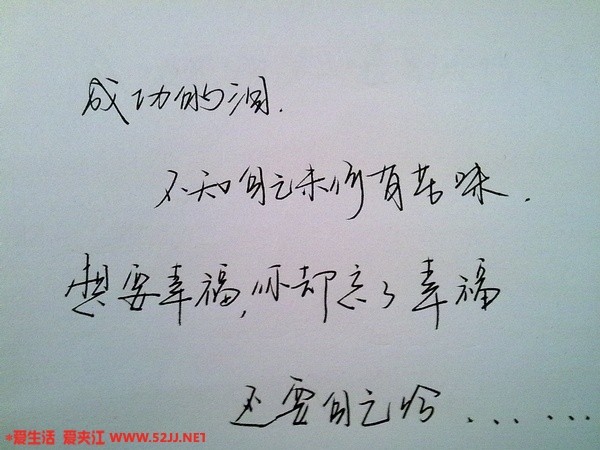 成功的泪.
不知自己有苦味.
想要幸福,你却忘了幸福
还要自己给......
*爱生活 爱夹江 WWW.52JJ.NET